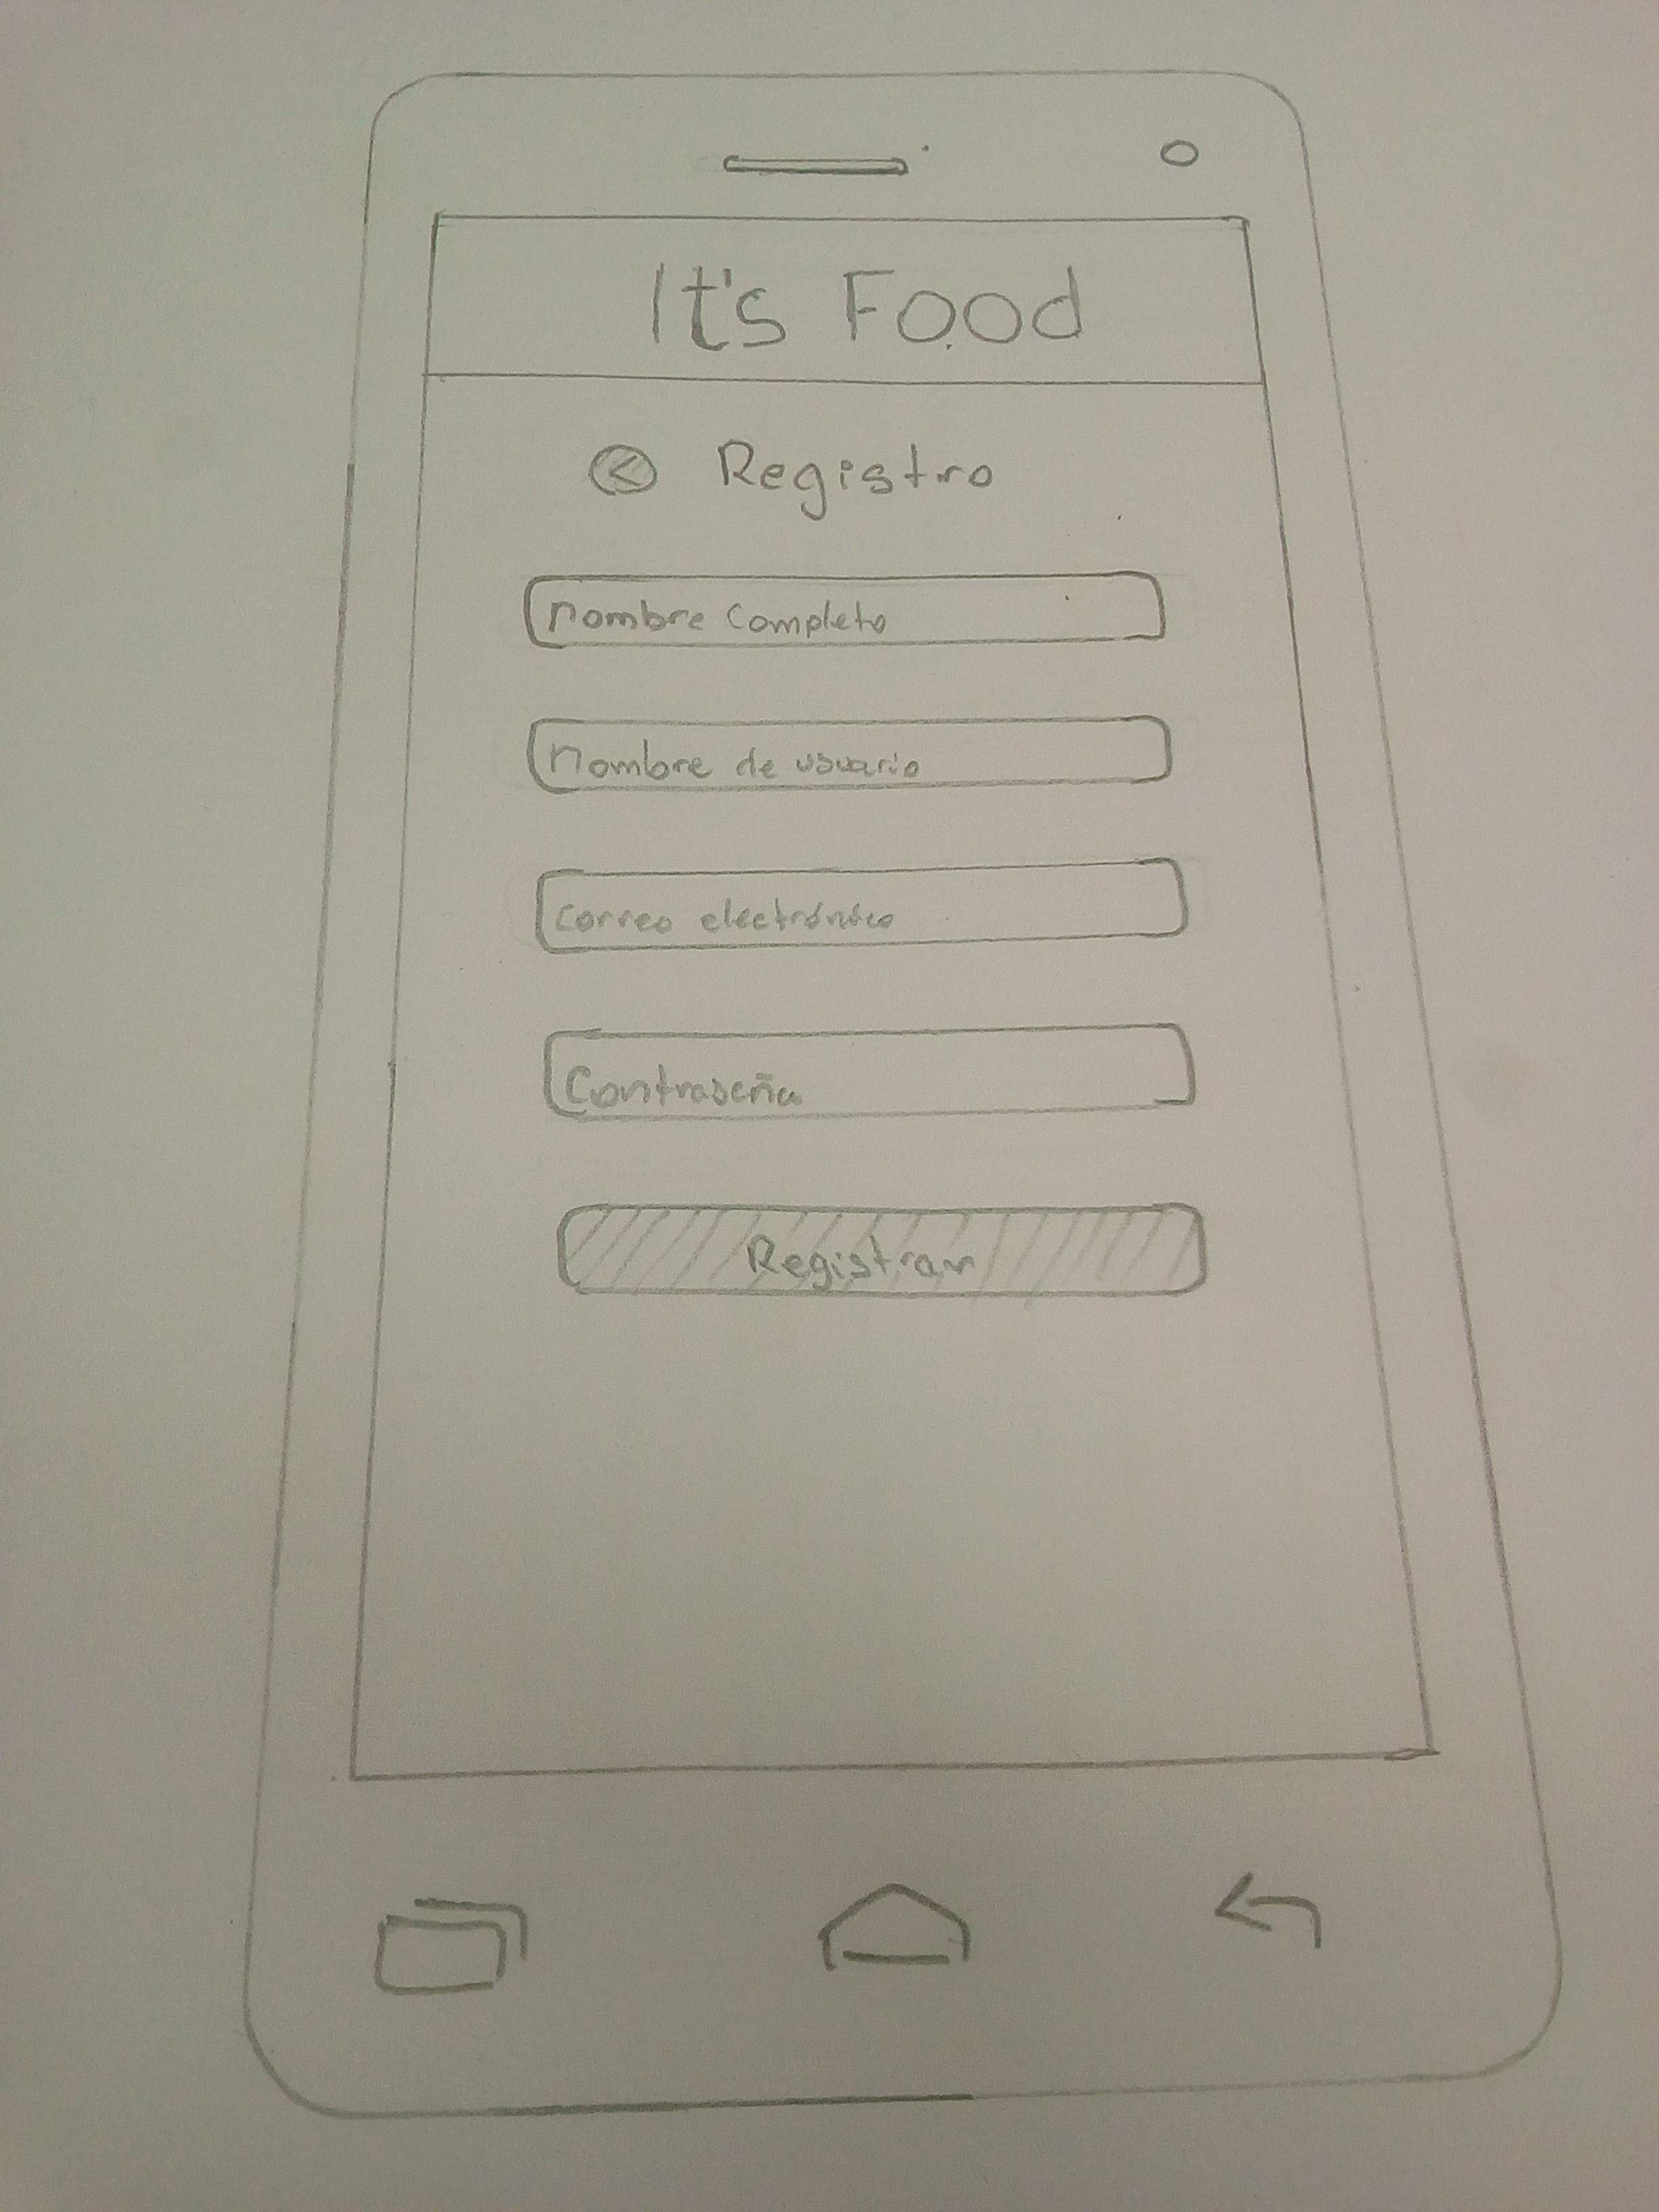 It's Food
Registro
nombre Completo
nombre de usuario
correo electrónico
Contraseña
Registrar